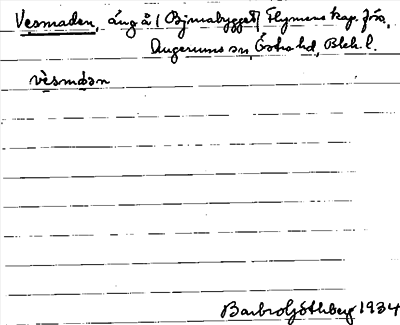 Vesmaden, äng å (Björnabygget) Flymens kap. förs.,
Augerums sn, Östra hd, Blek. l.
vèsmádən
Barbro Göthberg 1934